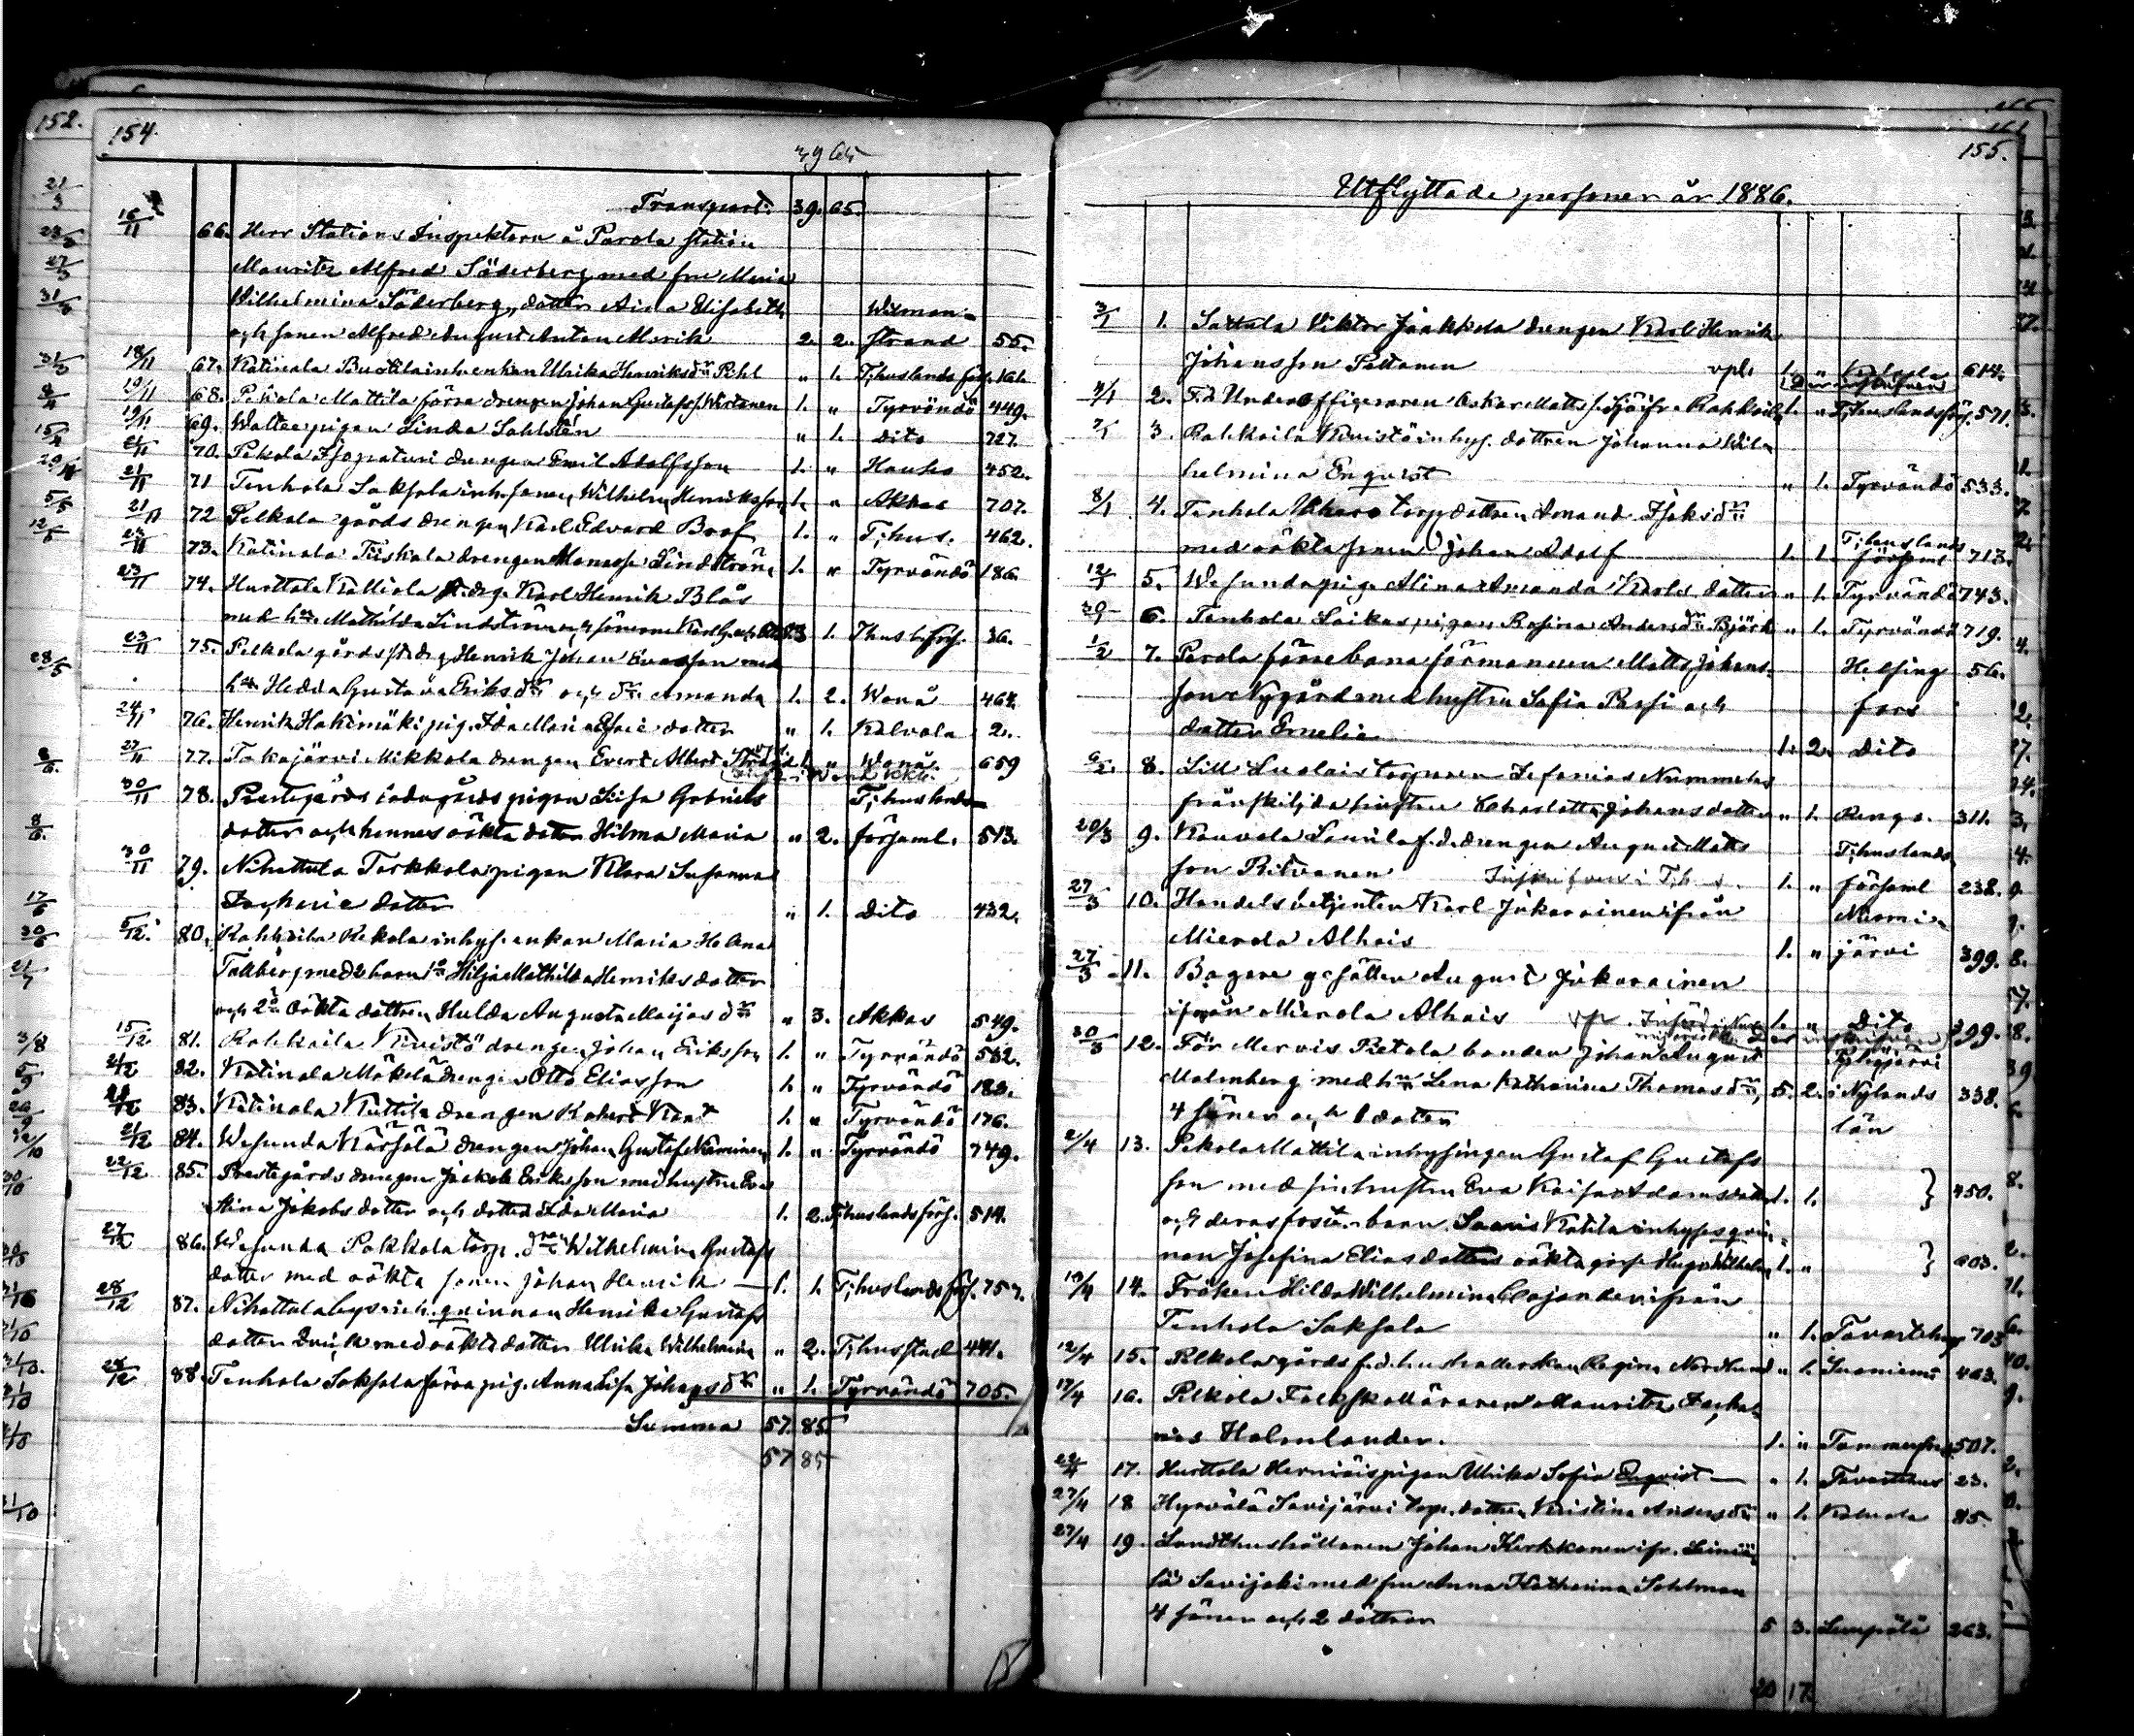 152.
154.
39 65
Transport. 39. 65.
16/11 66. Herr Stations Inspektorn å Parola station
Mauritz Alfred Söderberg med fru Maria
Wilhelmina Söderberg, dotter Aina Elisabeth Wilman-
och sonen Alfred August Anton Marik 2. 2. strand 55.
18/11 67. Katinala Buskila inh. enkan Ulrika Henriksdr Pihl " 1. T:huslands förs. 161.
19/11 68. Pekola Mattila förra drengen Johan Gustafss. Wirtanen 1. " Tyrvändö 449.
19/11 69. Waltee pigan Linda Sahlstén " 1. Dito 727.
21/11 70. Pekola drengen Emil Adolfsson 1. " Hauho 452.
21/11 71 Tenhola Saksala inh. sonen Wilhelm Henriksson 1. " Akkas 707.
21/11 72 Pelkola gårds drengen Karl Edvard Boof 1. " T:hus. 462.
23/11 73. Katinala Tiiskala drengen Manasse Lindström 1. " Tyrvändö 186.
23/11 74. Hurttala Kalliola st.drg. Karl Henrik Blås
med h:u Mathilda Lindström och sönerna Karl 3 1. Thus l. förs. 36.
23/11 75. Pelkola gårds st.drg Henrik Johan Evasson med
h:u Hedda Gustava Eriksdr och dr Amanda 1. 2. Wanå 464.
24/11 76. Henrik Hakimäki pig. Ida Maria Esaiedotter " 1. Kalvola 2.
27/11 77. Takajärvi Mikkola drengen Evert Albert Strand 1. " Wanå. 659
30/11 78. Prestegårds ladugårds pigan Lisa Gabriels T:huslands
dotter och hennes oäkta dotter Hilma Maria " 2. församl. 513.
30/11 79. Nihattula Torkkola pigan Klara Susanna
Zacharie dotter " 1. Dito 432.
5/12. 80. Rahkoila Kekola inhys. enkan Maria Helena
Takberg med 2 barn 1o Hilja Mathilda Henriksdotter
och 2o oäkta dottren Hulda Augusta Maijas dr " 3. Akkas 549.
15/12. 81. Rahkoila Knuistö drengen Johan Eriksson 1. " Tyrvändö 532.
21/12 82. Katinala Mäkelä drengen Otto Eliasson 1. " Tyrvändö 183.
21/12 83. Katinala Kuttila drengen Robert Kant 1. " Tyrvändö 176.
21/12 84. Wesunda Kärsälä drengen Johan Gustaf Kaminen 1. " Tyrvändö 749.
22/12. 85. Prestegårds drengen Jakob Eriksson med hustru Eva
Stina Jakobsdotter och dotter Ida Maria 1. 2. T:huslands förs. 514.
27/12 86. Wesunda Pakkola torp. dr Wilhelmina Gustafs
dotter med oäkta sonen Johan Henrik 1. 1. T:huslands förs. 757.
28/12 87. Nihattula qvinnan Henrika Gustafs
dotter med oäkta dotter Ulrika Wilhelmina " 2. T:hus stad 441.
28/12 88. Tenhola Saksala förra pig. Anna Lisa Johansdr " 1. Tyrvändö 705.
Summa 57. 85.
57 85
155.
Utflyttade personer år 1886.
3/1 1. Sattula Viktor Jaakkola drengen Karl Henrik
Johansson Peltonen vpl. 1. " Kalvola 614.
4/1 2. F.d. Under officeraren Oskar Matts s. Sjö ifr. Rahkoila 1. " T:huslandsförs. 571.
7/1 3. Rahkoila Knuistö inhys. dottren Johanna Wil-
helmina Enqvist " 1. Tyrvändö 533.
8/1 4. Tenhola Uhkero torp dottren Amand. Isaksdr T:huslands
med oäkta sonen Johan Adolf 1. 1. församl 713.
12/1 5. Wesunda pig. Alina Amanda Karls dotter " 1. Tyrvändö 743.
30/1 6. Tenhola Laikas pigan Rosina Andersdr Björk " 1. Tyrvändö 719.
1/2 7. Parola förre banaförmannen Matts Johans- Helsing 56.
son Nygård med hustru Sofia Rosi och fors
dotter Emelie 1. 2. Dito
6/2. 8. Lill Luolais torparen Zefanias Nummelas
frånskiljda hustru Charlotta Johansdotter " 1. Rengo. 311.
20/3 9. Kouvola Saurila f.d. drengen August Matts T:huslands
son Ritvanen Inskrifven i T:h. 1. " församl 238.
27/3 10. Handels betjenten Karl Jukarainen ifrån Nurmi-
Mierola Alhais 1. " järvi 399.
27/3 11. Bagare gesällen August Jukarainen
ifrån Mierola Alhais vp. 1. " Dito 399.
30/3 12. För Mervis Pietola bonden Johan August
Malmberg med h:u Lena Katharina Thomasdr, 5. 2. i Nylands 338.
4 söner och 1 dotter län
2/4 13. Pekola Mattila inhysingen Gustaf Gustafs
son med sin hustru Eva Kaisa Adamsdotter 1. 1. } 450.
och deras foster barn. Katila inhyses qvin-
nan Josefina Eliasdotters oäkta gosse Hugo Wilhelm 1. " } 603.
10/4 14. Fröken Hilda Wilhelmina Cajander ifrån
Tenhola Saksala " 1. Tavastehus 703
12/4 15. Pelkola gårds f.d. hushållerskan Regina Nordlund " 1. Suoniemi 463.
17/4 16. Pelkola Folkskolläraren Mauritz Zacha-
rias Holmlander. 1. " Tammerfors 507.
22/4 17. Hurttala Herniäis pigan Ulrika Sofia Enqvist " 1. Tavastehus 23.
27/4 18 Hyrvälä Savijärvi torp. dotter Kristina Andersdr " 1. Kalvola 85.
27/4 19. Landthushållaren Johan Kirkkanen ifr. Leiniä-
lä Savijoki med fru Anna Katharina Sohlman
4 söner och 2 döttrar 5 3. Lempälä 263.
20 17.